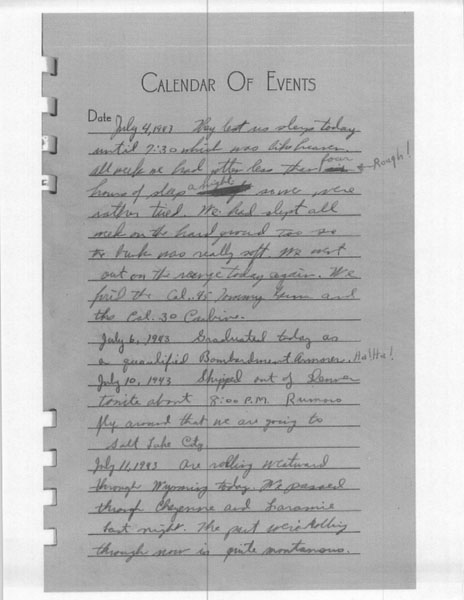 CALENDAR OF EVENTS
Date July 4, 1943 They let us sleep today
until 7:30 which was like heaven.
all week we had gotten less than four ← Rough!
hours of sleep a night so we were
rather tired. We had slept all
week on the hard ground too so
the bunk was really soft. We went
out on the range today again. We
fired the Cal. .45 Tommy Gun and
the Cal. 30 Carbine.
July 6, 1943 Graduated today as
a quailified Bombardment Armorer. Ha! Ha!
July 10, 1943 Shipped out of Denver
tonite about 8:00 P.M. Rumors
fly around that we are going to
Salt Lake City
July 11, 1943 Are rolling westward
through Wyoming today. We passed
through Cheyenne and Laramie
last night. The part we're rolling
through now is quite montanous.